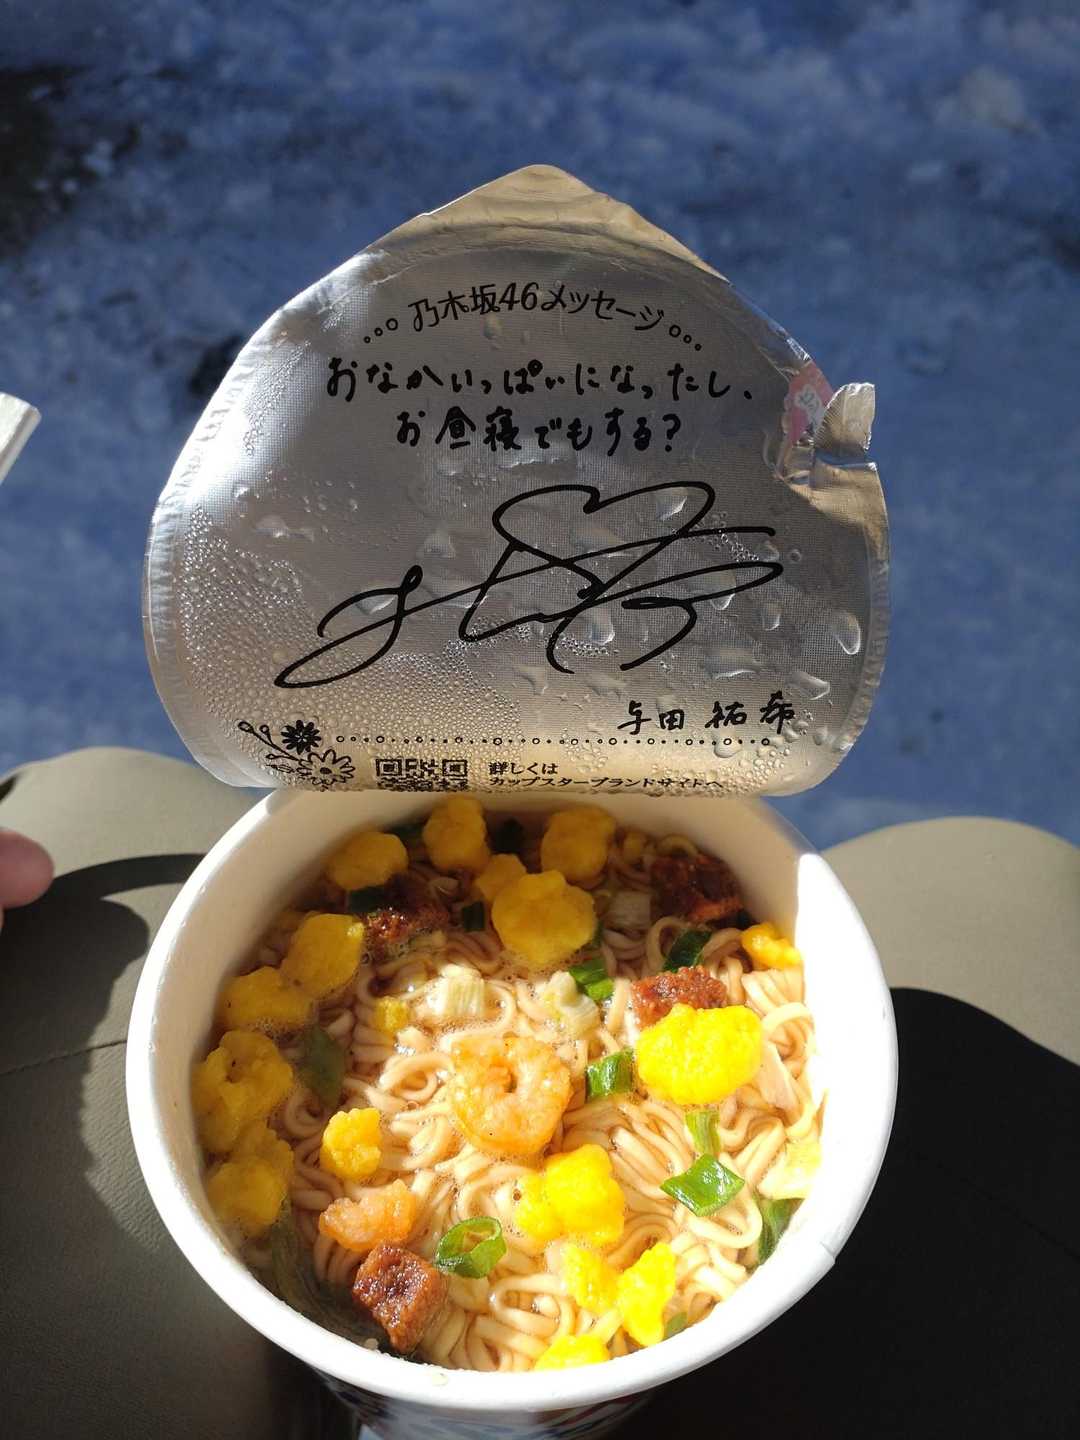 乃木坂46メッセージ
おなかいっぱいになったし、
お昼寝でもする?
与田 祐希
詳しくは
カップスターブランドサイトへ